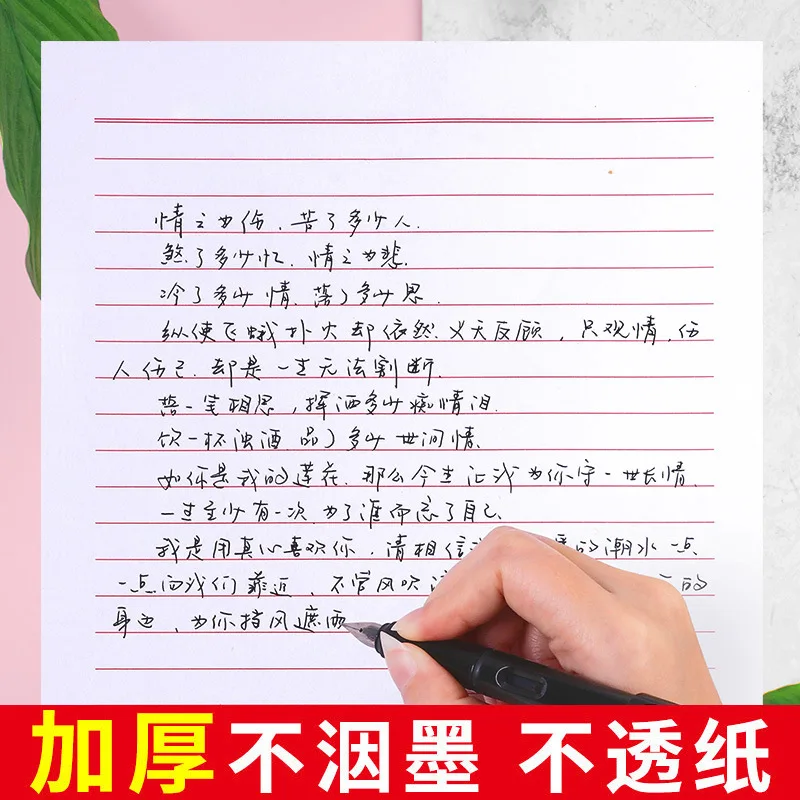 情之为伤、苦了多少人.
煞了多少忆、情之为悲.
冷了多少情、落了多少思.
纵使飞蛾扑火却依然义无反顾，只观情，伤
人伤己.却是一生无法割断.
落一笔相思，挥洒多少痴情泪.
饮一杯浊酒.品了多少世间情.
如你是我的莲花.那么今生让我为你守一世长情.
一生至少有一次.为了谁而忘了自己.
我是用真心喜欢你，请相信 的潮水一点、
一点向我们靠近，不管风吹 的
身边，为你挡风遮雨
加厚不洇墨 不透纸